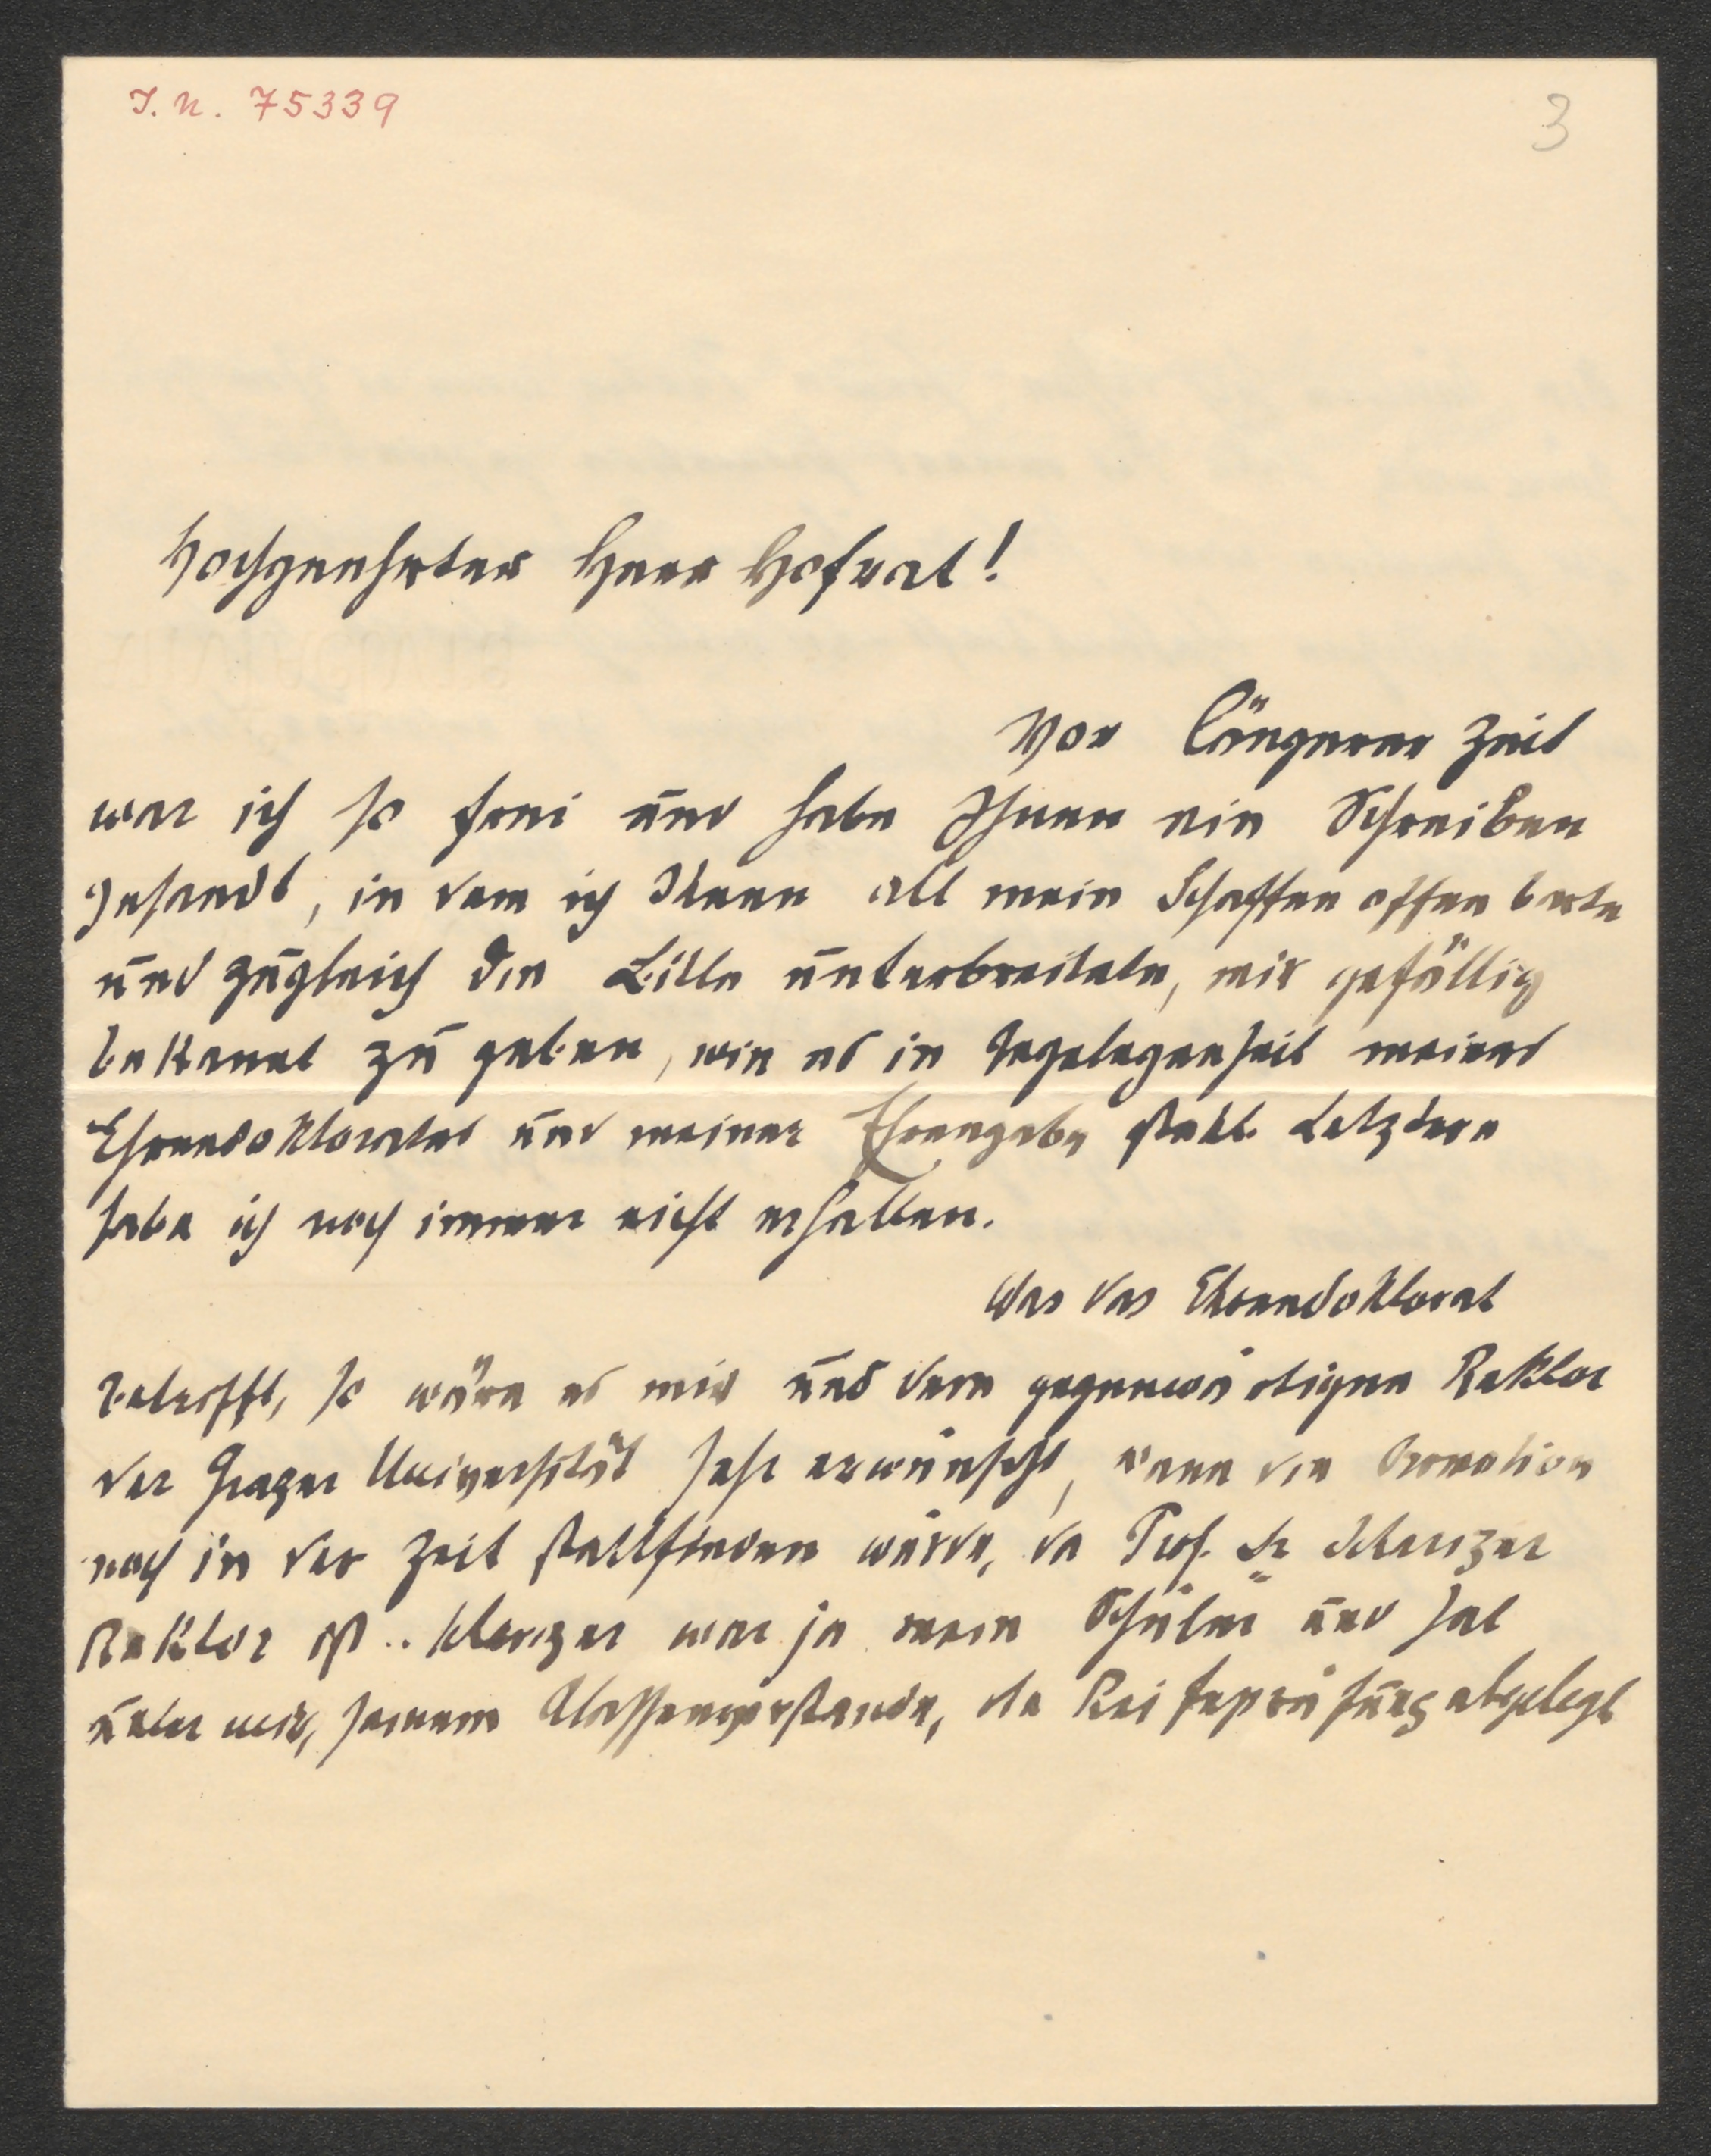 J. N. 75339
3
Hochgeehrter Herr Hofrat!
Vor längerer Zeit
war ich so frei und habe Ihnen ein Schreiben
gesandt, in dem ich Ihnen all mein Schaffen offenbarte
und zugleich die Bitte unterbreitete, mir gefällig
bekannt zu geben, wie es in Angelegenheit meines
Ehrendoktorates und meiner Ehrengabe steht. Letztere
habe ich noch immer nicht erhalten.
Was das Ehrendoktorat
betrifft, so wäre es mir und dem gegenwärtigen Rektor
der Grazer Universität sehr erwünscht, wenn die Promotion
noch in der Zeit stattfinden würde, da Prof. Dr
Rektor ist. war ja mein Schüler und hat
unter mir, seinem Klassenvorstande, die Reifeprüfung abgelegt